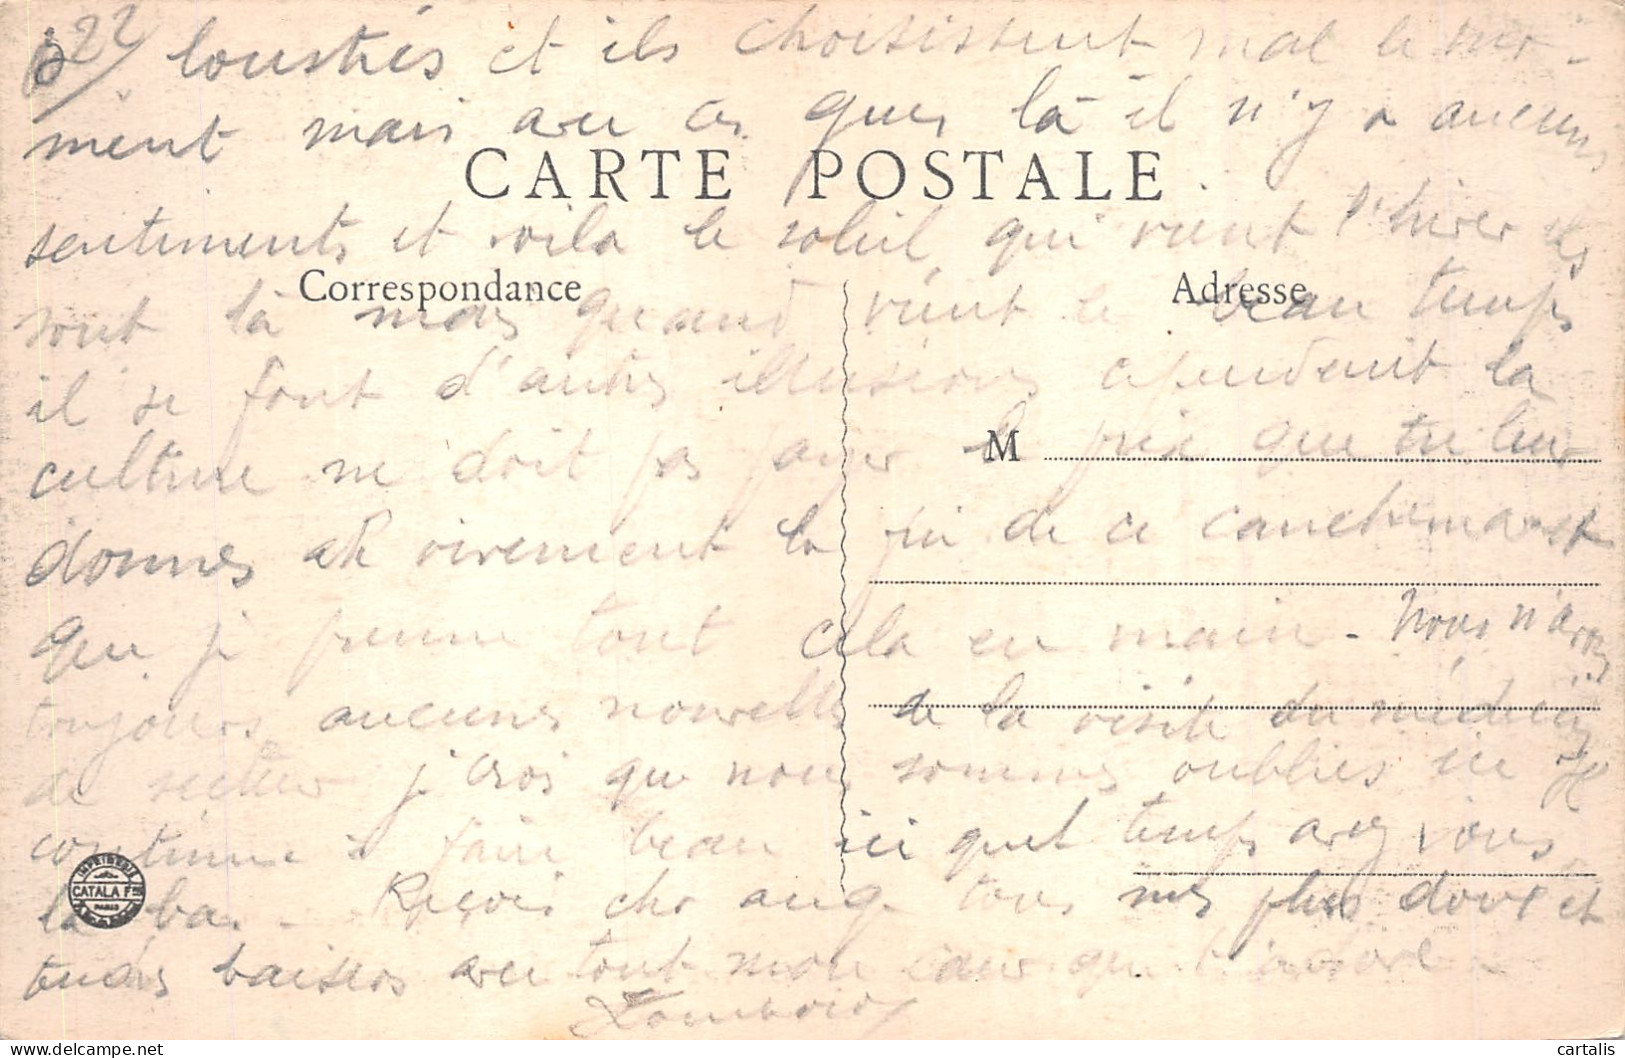 22
loustics et ils choisissent mal le mo-
ment mais avec ces gens là il n'y a aucuns
CARTE POSTALE
sentiments et voila le soleil qui vient l'hiver ils
Correspondance
Adresse
sont là mais quand vient le beau temps
il se font d'autres illusions cependant la
culture ne doit pas payer le prix que tu leur
M
donnes et vivement la fin de ce cauchemar et
que je prenne tout cela en main - Nous n'avons
toujours aucunes nouvelles de la visite du médecin
de secteur je crois que nous sommes oubliés ici Il
continue à faire beau ici quel temps avez vous
IMPRIMERIE
CATALA Frères
PARIS
là bas - Reçois cher ange tous mes plus doux et
tendres baisers avec tout mon cœur qui t'adore